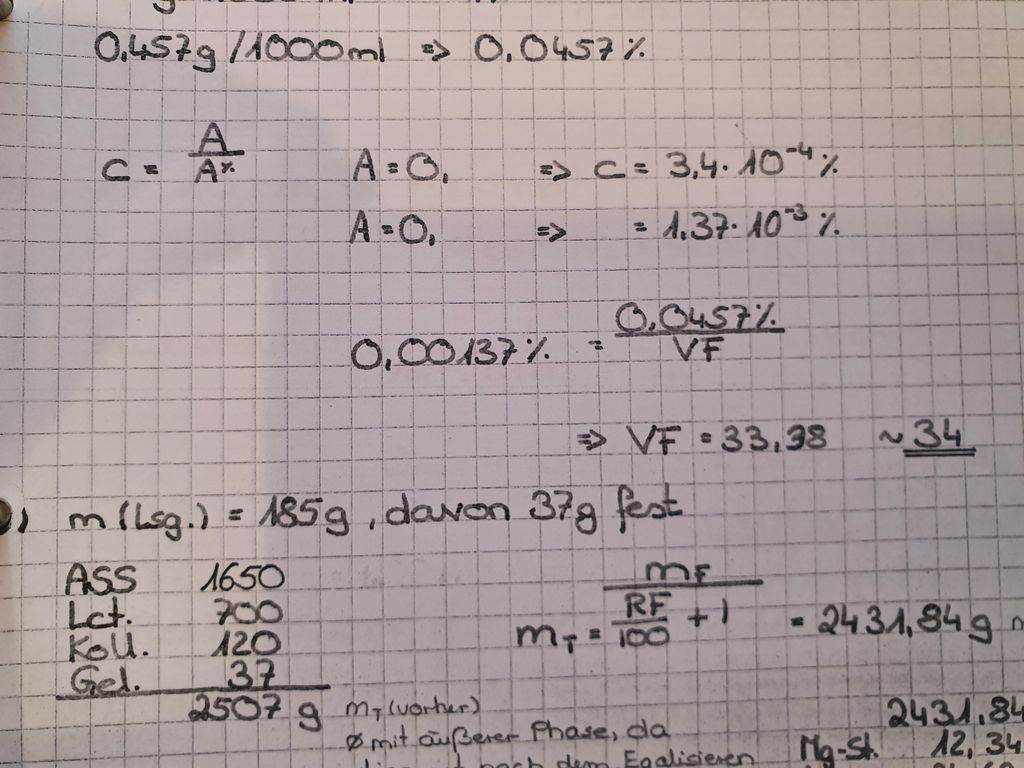 0,457g /1000ml => 0,0457%
c = A/A% A = 0, => c = 3,4 · 10⁻⁴ %
A = 0, => = 1,37 · 10⁻³ %
0,00137% = 0,0457%/VF
=> VF = 33,98 ~34
m (Lsg.) = 185g, davon 37g fest
ASS 1650
Lct. 700
Koll. 120
Gel. 37
2507 g
mT = mF / (RF/100 + 1) = 2431,84g
mT (vorher)
ø mit äußerer Phase, da
nach dem Egalisieren
2431,84
Mg-St. 12,34